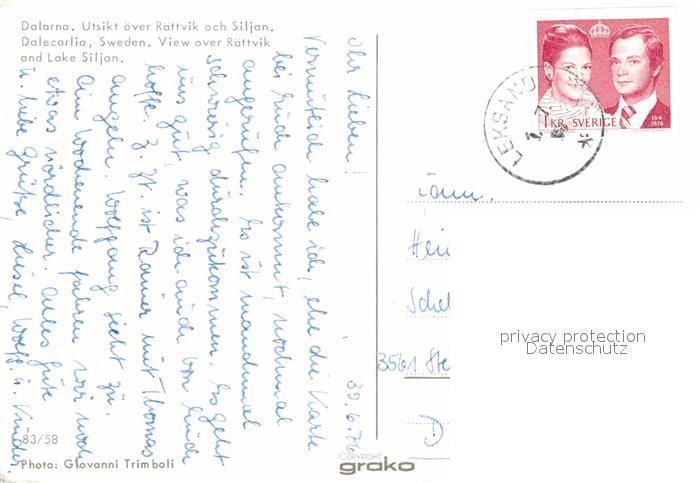 Dalarna. Utsikt över Rättvik och Siljan.
Dalecarlia, Sweden. View over Rättvik
and Lake Siljan.
Ihr Lieben! 30.6.76
Vermutlich habe ich, ehe die Karte
bei Euch ankommt, nochmal
angerufen. Es ist manchmal
schwierig durchzukommen. Es geht
uns gut, was ich auch von Euch
hoffe. Z. Zt. ist Rainer mit Thomas
angeln. Wolfgang sieht zu.
Am Wochenende fahren wir noch
etwas nördlicher. Alles Gute
u. liebe Grüße Liesel, Wolfg. u. Kinder.
83/58
Photo: Giovanni Trimboli
COPYRIGHT
grako
1 KR SVERIGE 19 6 1976
LEKSAND
Fam.
Hei
Sche
3561 Ste
D
privacy protection
Datenschutz